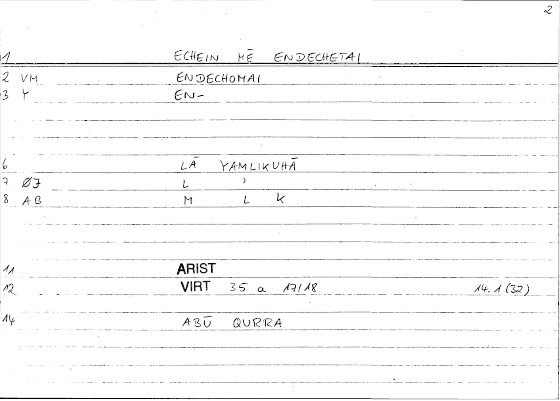 2
1 ECHEIN MĒ ENDECHETAI
2 VM ENDECHOMAI
3 Y EN-
6 LĀ YAMLIKUHĀ
7 ØJ L ʾ
8 AB M L K
11 ARIST
12 VIRT 35 a 17/18 14.1 (32)
14 ABŪ QURRA